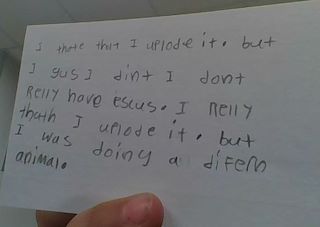 I thote thit I uplode it. but
I gus I dint I dont
Relly have escus. I Relly
thoth I uplode it. but
I was doing a difern
animal.